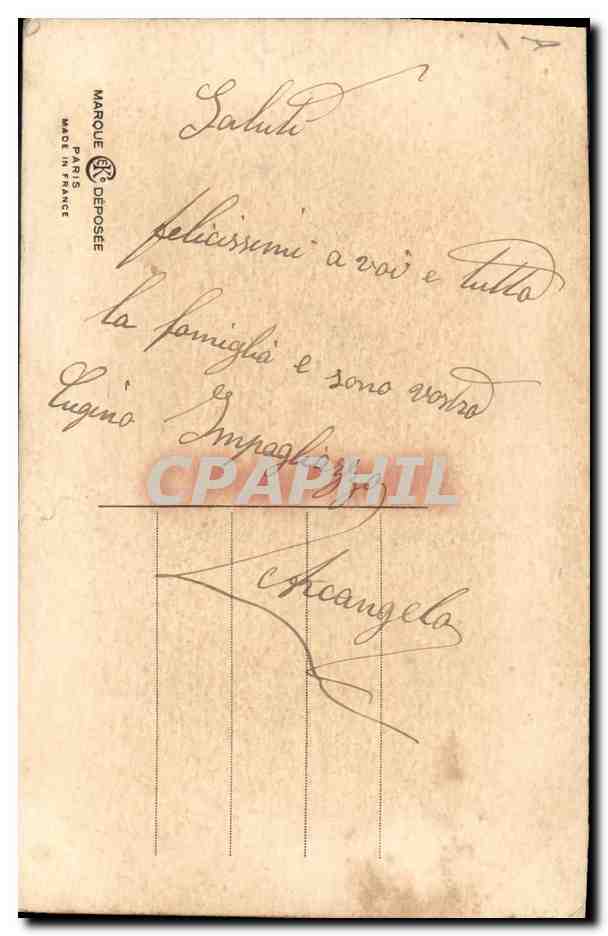 Saluti
felicissimi a voi e tutta
la famiglia e sono vostro
Cugino Impagliazzo
Arcangelo
MARQUE EK° DÉPOSÉE
PARIS
MADE IN FRANCE
CPAPHIL